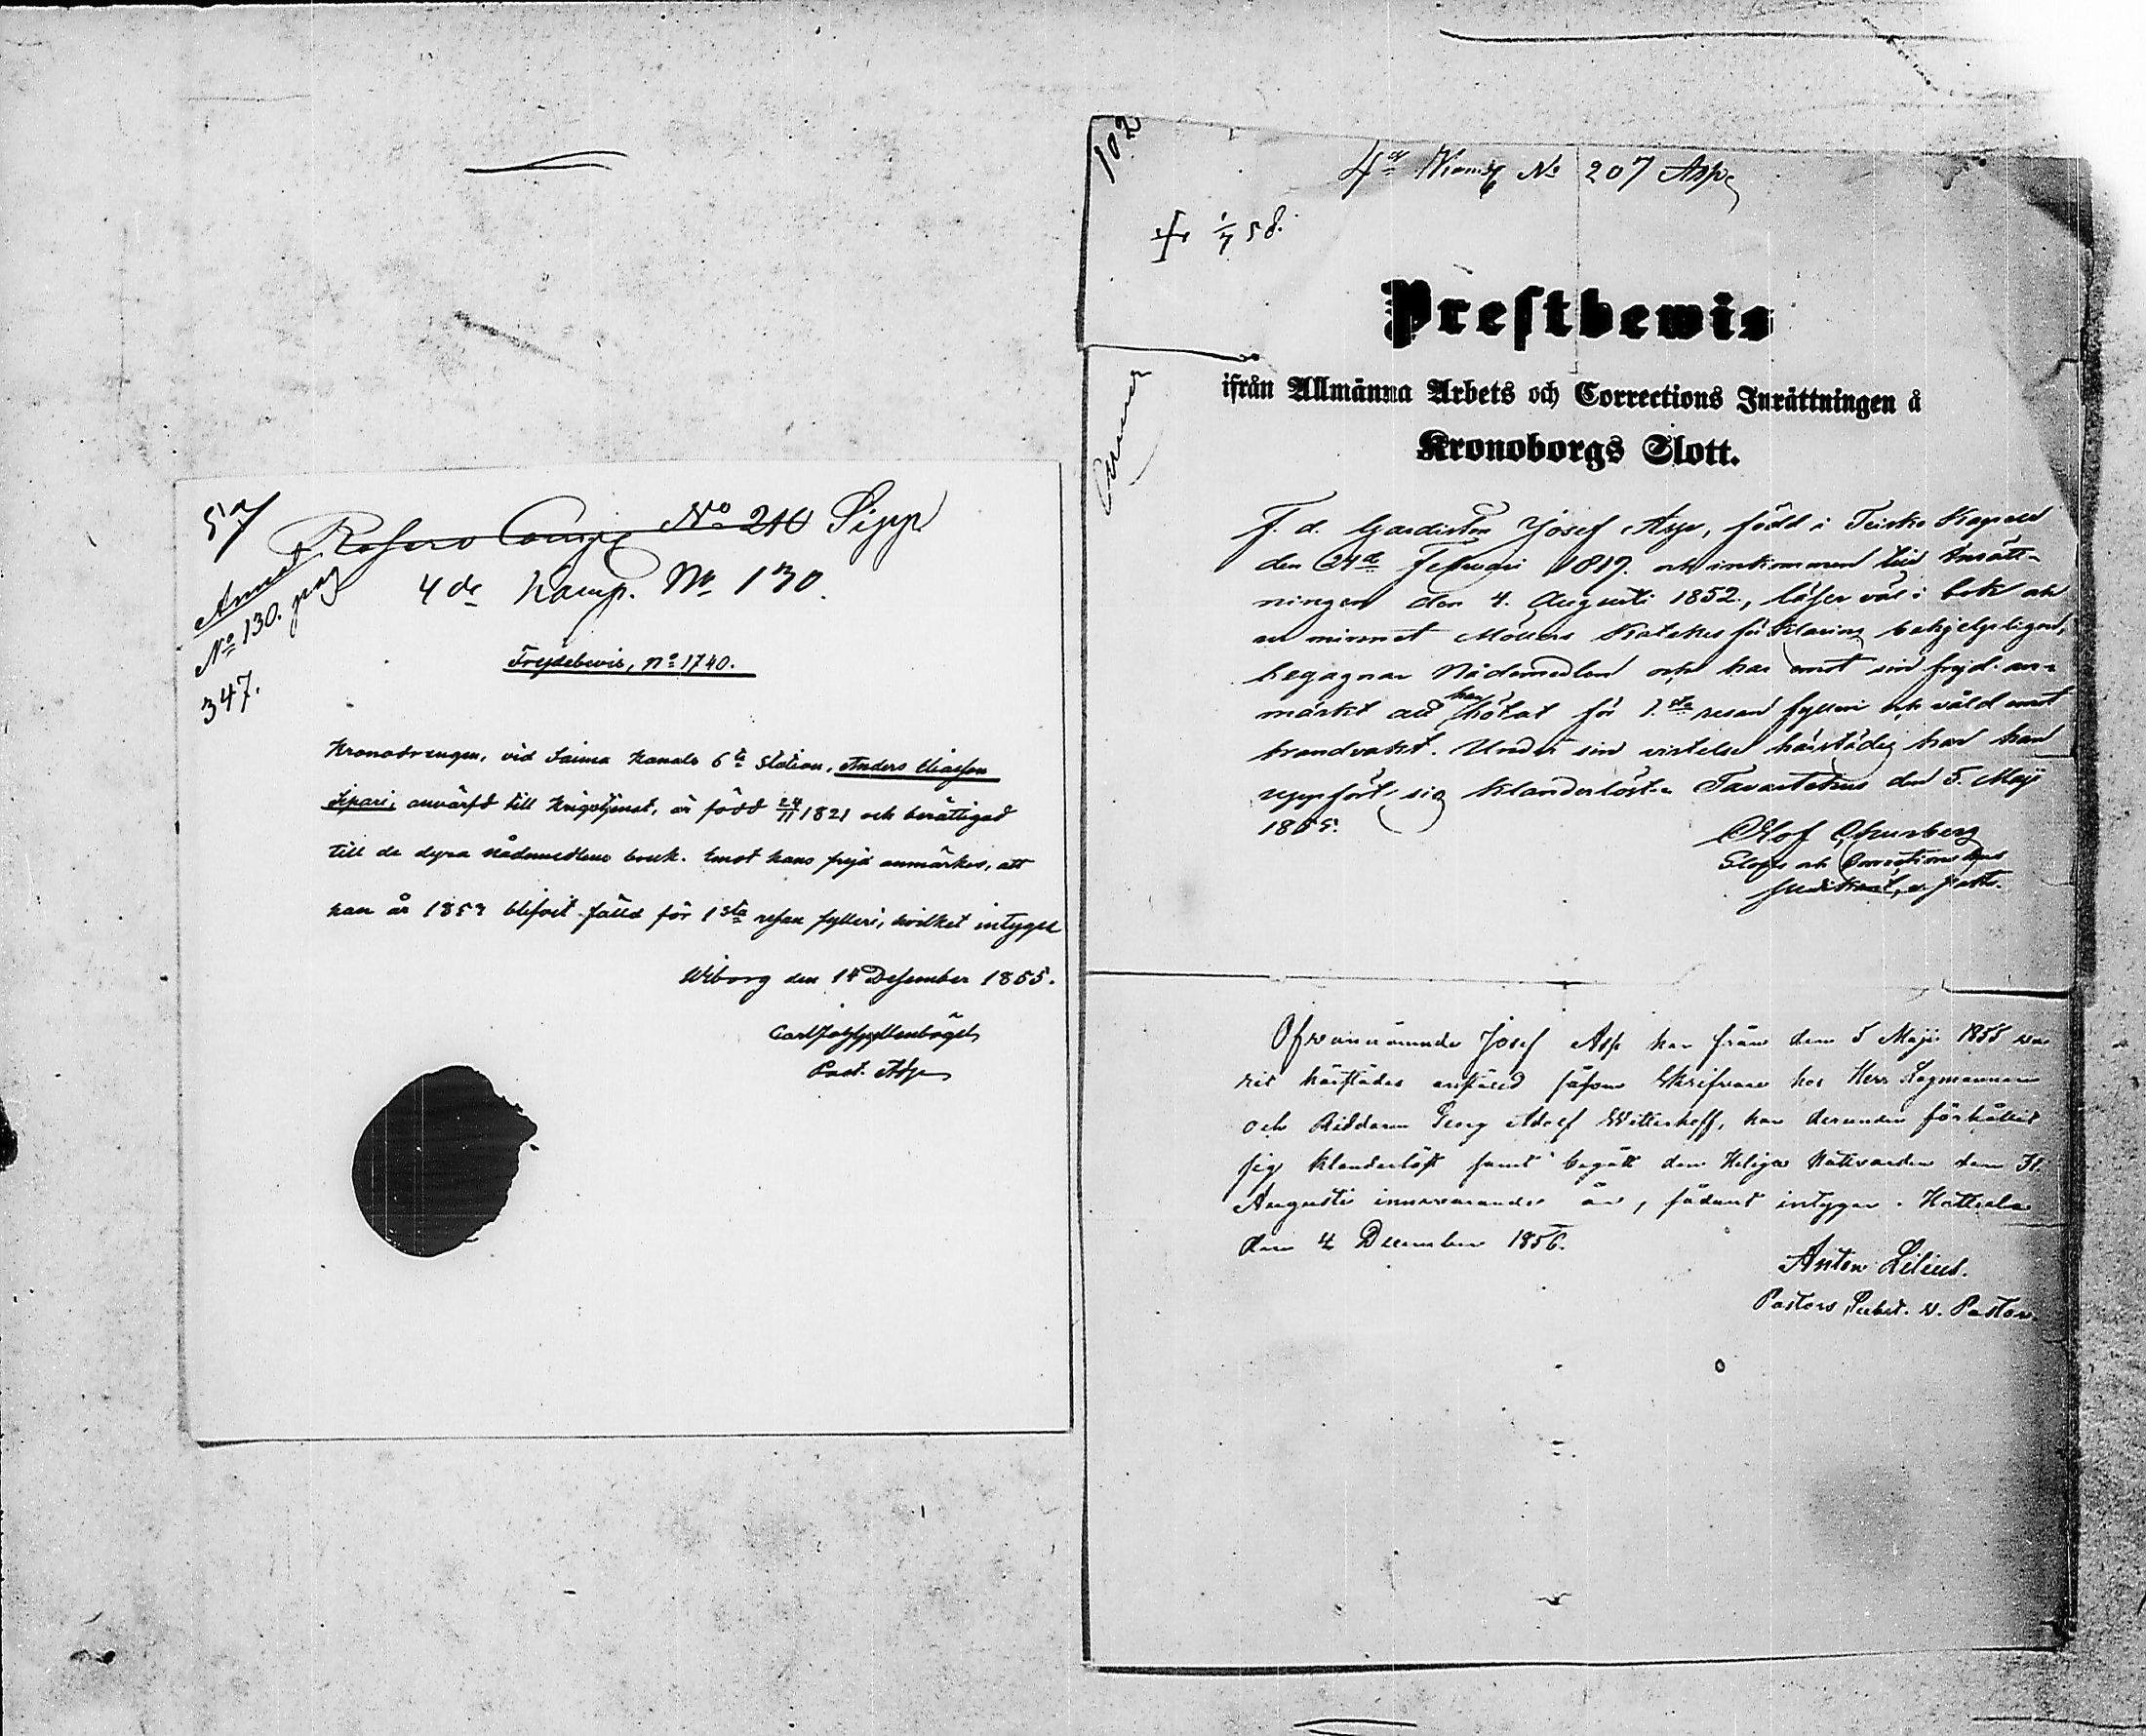 57
Reserv Comp No 210 Sipp
4de Komp. No 130.
Annot
No 130. pag
347.
Frejdebevis, No 1740.
Kronodrengen, vid Saima Kanals 6te Station, Anders Eliasson
Sipari, anvärfd till Krigstjenst, är född 24/11 1821 och berättigad
till de dyra nådemedlens bruk. Emot hans frejd anmärkes, att
han år 1853 blifvit fälld för 1sta resan fylleri, hvilket intygar
Wiborg den 14 Desember 1855.
Past. Adj.
102
4de Komp No 207 Asp
† 1/7 58.
Prestbewis
ifrån Allmänna Arbets och Corrections Inrättningen å
Kronoborgs Slott.
F. d. Gardisten Josef Asp, född i Teisko Kapell
den 24de Februari 1819. och inkommen till Inrätt-
ningen den 4. Augusti 1852., läser väl i bok och
ur minnet Möllers Katekes för klaring behjelpligen,
begagnar Nådemedlen och har emot sin frejd an-
märkt att han bötat för 1.sta resan fylleri och våld emot
brandvakt. Under sin vistelse härstädes har han
uppfört sig klanderlöst. Tavastehus den 5. Maji
1855.
Olof Churberg
Slotts och Corrections
Predikant,
Ofvannämnde Josef Asp har från den 5 Maji 1855 va-
rit härstädes anstäld såsom Skrifvare hos Herr Lagmannen
och Riddaren Georg Adolf Wetterhoff, har derunder förhållit
sig klanderlöst samt begått den Heliga Nattvarden den 31
Augusti innevarande år, sådant intygar. Hattula
den 4 December 1856.
Anton Lilius.
Pastors Subst. v. Pastor.